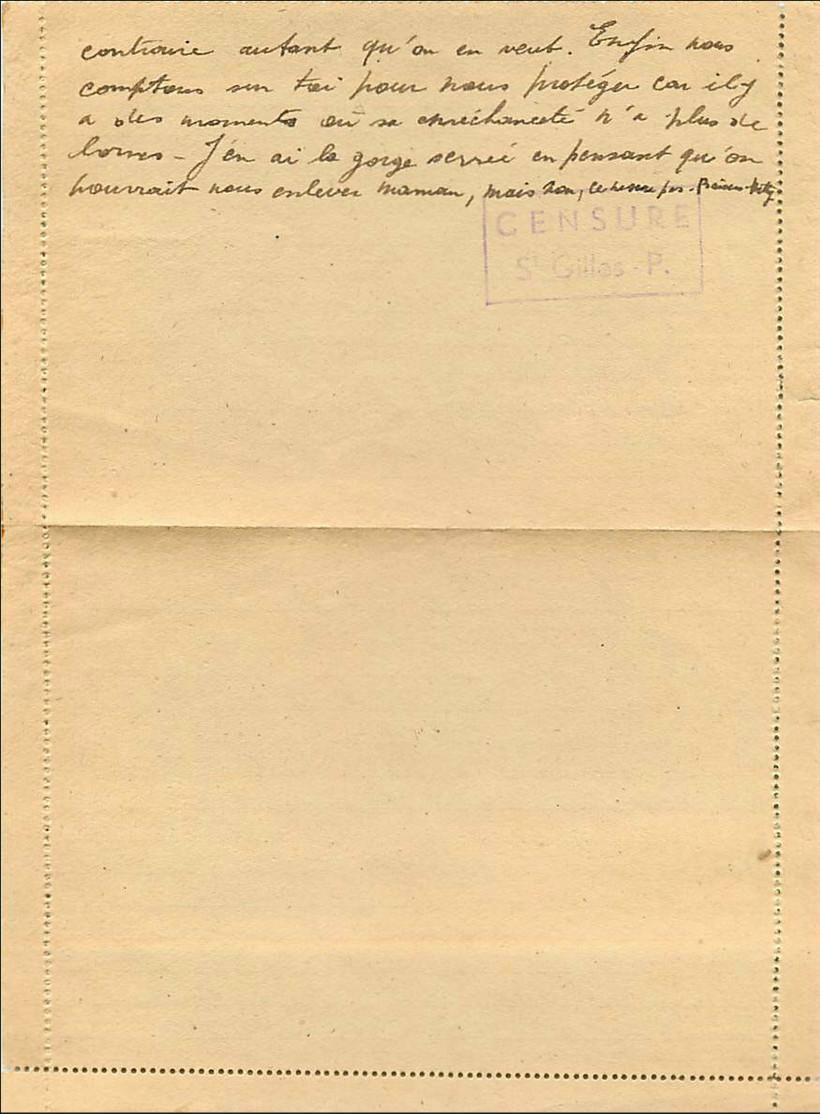 contraire autant qu'on en veut. Enfin nous
comptons sur toi pour nous protéger car il y
a des moments où sa méchanceté n'a plus de
bornes - J'en ai la gorge serrée en pensant qu'on
pourrait nous enlever maman, mais non, ce sera pas.
CENSURE
St Gilles - P.